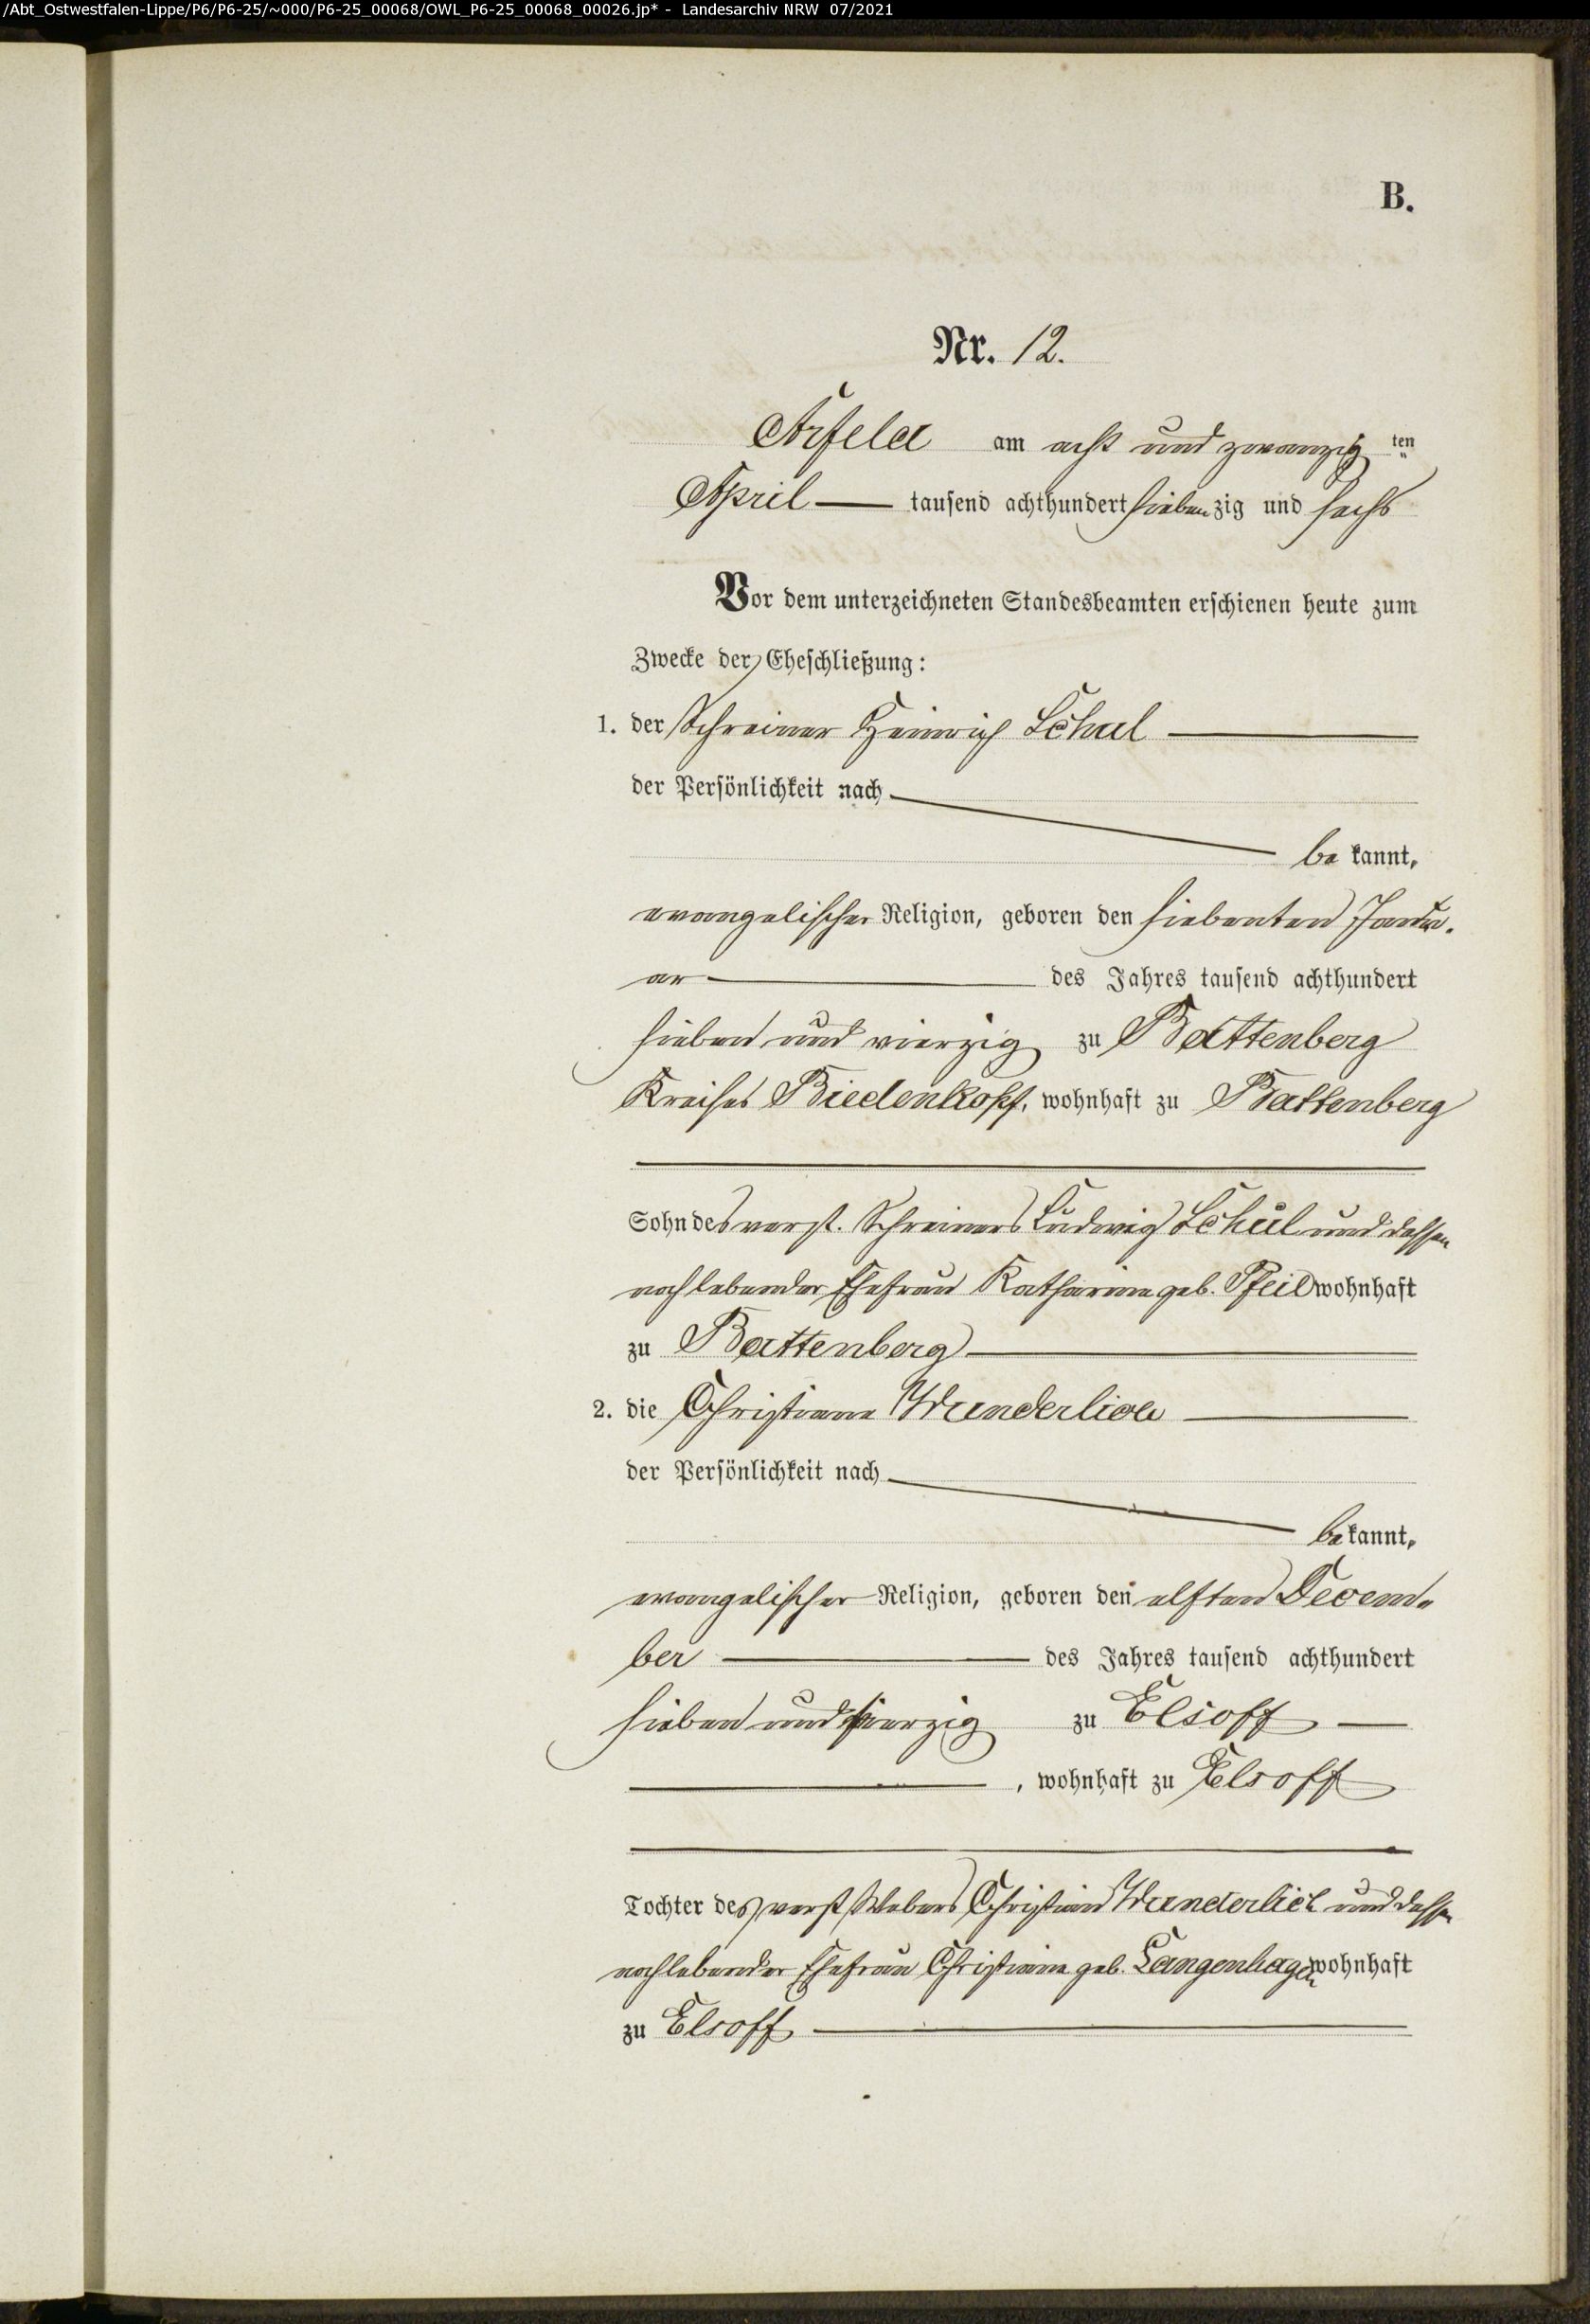 /Abt_Ostwestfalen-Lippe/P6/P6-25/~000/P6-25_00068/OWL_P6-25_00068_00026.jp* - Landesarchiv NRW 07/2021
B.
Nr. 12.
Arfeld am acht und zwanzig ten
April tausend achthundert siebenzig und sechs
Vor dem unterzeichneten Standesbeamten erschienen heute zum
Zwecke der Eheschließung:
1. der Schreiner Heinrich Schul
der Persönlichkeit nach
be kannt,
evangelischer Religion, geboren den siebenten Janu-
ar des Jahres tausend achthundert
sieben und vierzig zu Battenberg
Kreises Biedenkopf, wohnhaft zu Battenberg
Sohn des verst. Schreiners Ludwig Schul und dessen
nochlebender Ehefrau Katharine geb. Pfeil wohnhaft
zu Battenberg
2. die Christiane Wunderlich
der Persönlichkeit nach
bekannt,
evangelischer Religion, geboren den elften Decem-
ber des Jahres tausend achthundert
sieben und vierzig zu Elsoff
, wohnhaft zu Elsoff
Tochter des verst. Webers Christian Wunderlich und dessen
nochlebender Ehefrau Christiane geb. Langenhagen wohnhaft
zu Elsoff